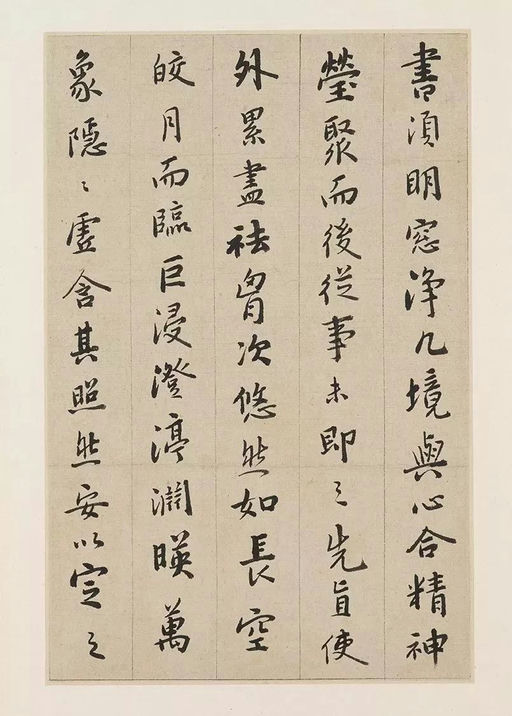 書須明窓净几境與心合精神
瑩聚而後從事未即之先旨使
外累盡祛胷次悠然如長空
皎月而臨巨浸澄渟潤暎萬
象隱〻虛含其照然安以定之